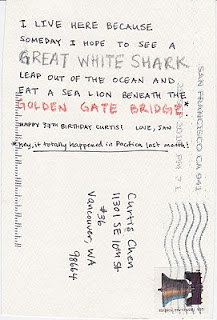 I LIVE HERE BECAUSE
SOMEDAY I HOPE TO SEE A
GREAT WHITE SHARK
LEAP OUT OF THE OCEAN AND
EAT A SEA LION BENEATH THE
GOLDEN GATE BRIDGE*.
HAPPY 37TH BIRTHDAY CURTIS! LUIZ, JAN
*Hey, it totally happened in Pacifica last month!
SAN FRANCISCO CA 941
Curtis Chen
11301 SE 10th St
#36
Vancouver, WA
98664